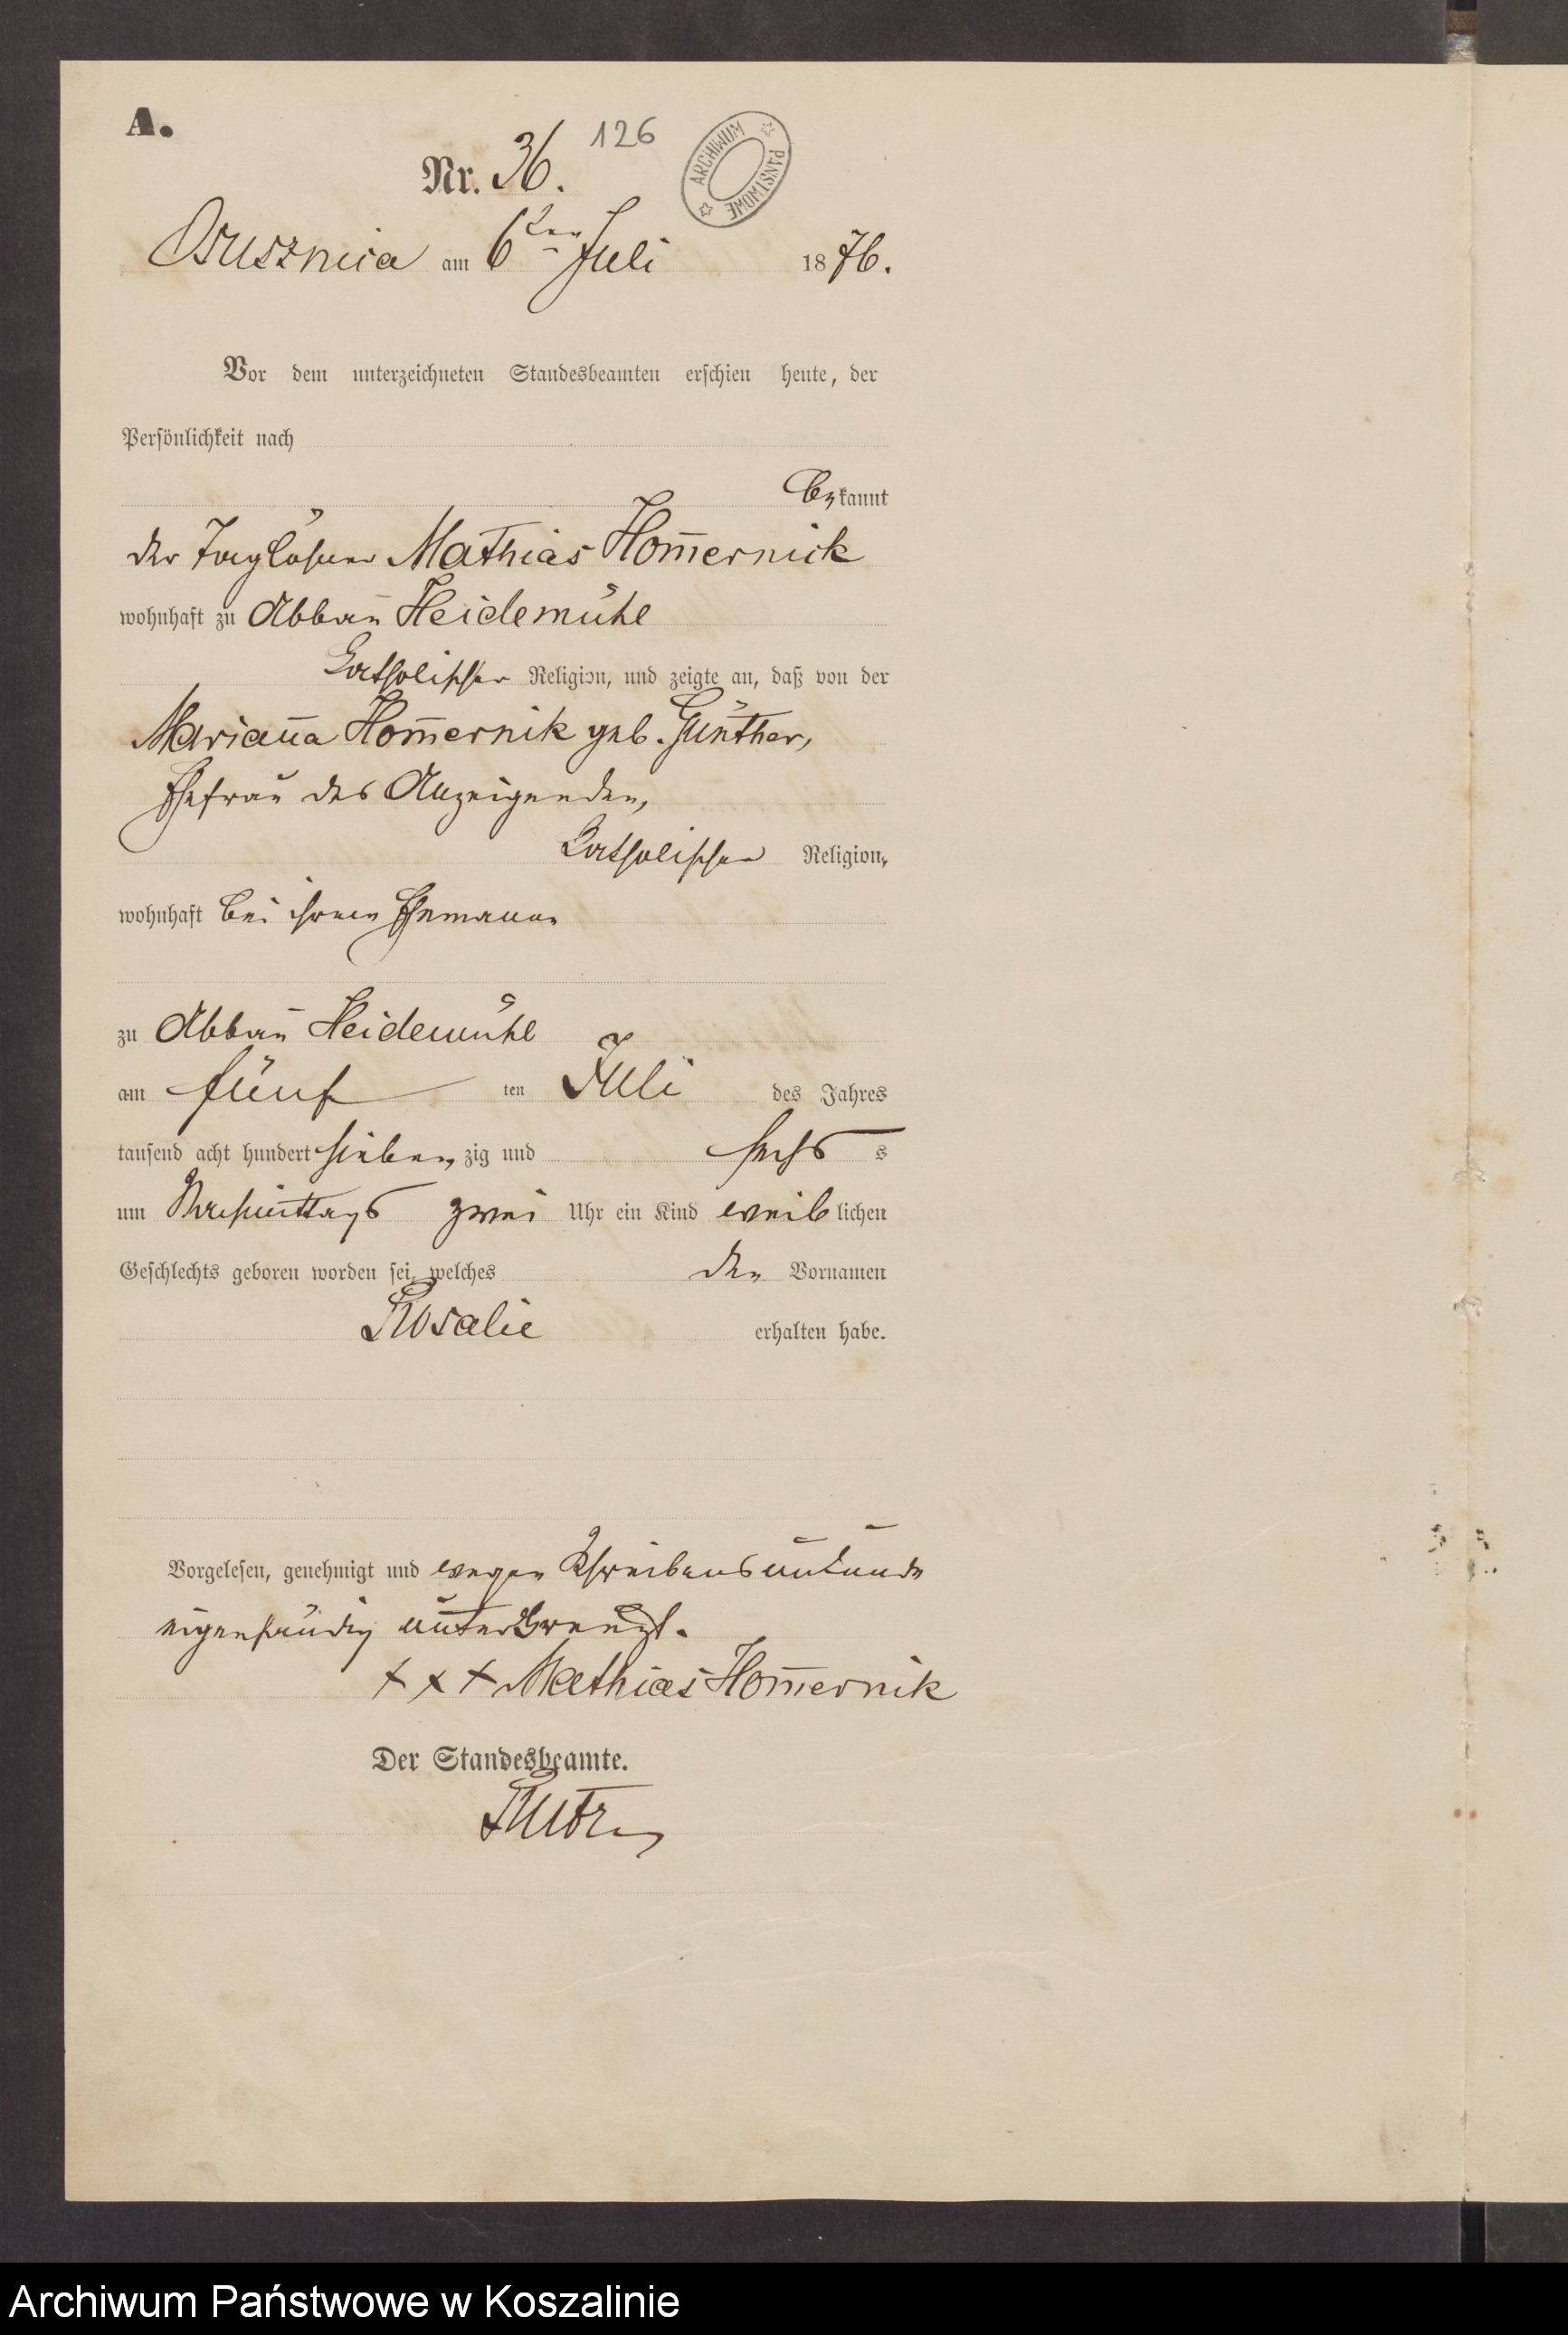 A.
Nr. 36. 126
ARCHIWUM PAŃSTWOWE
Osusznica am 6ten Juli 1876.
Vor dem unterzeichneten Standesbeamten erschien heute, der
Persönlichkeit nach
bekannt
der Taglöhner Mathias Hom̅ernick
wohnhaft zu Abbau Heidemühl
katholischer Religion, und zeigte an, daß von der
Marian̅a Hom̅ernik geb. Günther,
Ehefrau des Anzeigenden,
katholischer Religion,
wohnhaft bei ihrem Ehemanne
zu Abbau Heidemühl
am fünf ten Juli des Jahres
tausend acht hundert sieben zig und sechs s
um Nachmittags zwei Uhr ein Kind weiblichen
Geschlechts geboren worden sei, welches den Vornamen
Rosalie erhalten habe.
Vorgelesen, genehmigt und wegen Schreibensunkunde
eigenhändig unterkreuzt.
+ + + Mathias Hom̅ernik
Der Standesbeamte.
Archiwum Państwowe w Koszalinie